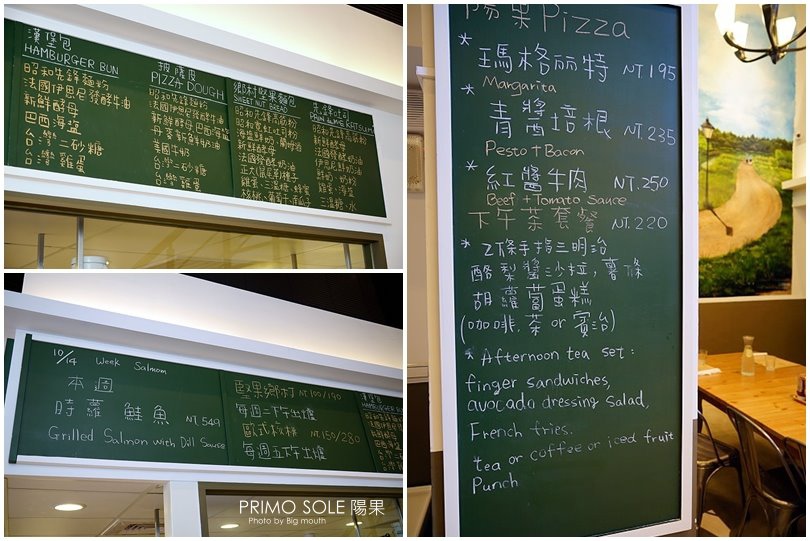 漢堡包
HAMBURGER BUN
昭和先鋒麵粉
法國伊思尼發酵牛油
新鮮酵母
巴西海鹽
台灣二砂糖
台灣雞蛋
披薩皮
PIZZA DOUGH
昭和先鋒麵粉
法國伊思尼發酵牛油
新鮮酵母巴西海鹽
丹麥新鮮奶油
美國牛奶
台灣二砂糖
台灣雞蛋
鄉村堅果麵包
SWEET NUT BREAD
先鋒吐司
10/14 Week Salmon
本週
時蘿 鮭魚 NT.549
Grilled Salmon with Dill Sauce
堅果鄉村 NT 100/190
每週二下午出爐
歐式核桃 NT.150/280
每週五下午出爐
漢堡包
HAMBURGER
PRIMO SOLE 陽果
Photo by Big mouth
陽果Pizza
* 瑪格丽特 NT.195
Margarita
* 青醬培根 NT.235
Pesto + Bacon
* 紅醬牛肉 NT.250
Beef + Tomato Sauce
下午茶套餐 NT.220
* 乙條手指三明治
酪梨醬沙拉，薯條
胡蘿蔔蛋糕
(咖啡.茶 or 賓治)
* Afternoon tea set :
finger sandwiches,
avocado dressing Salad,
French fries.
tea or coffee or iced fruit
Punch